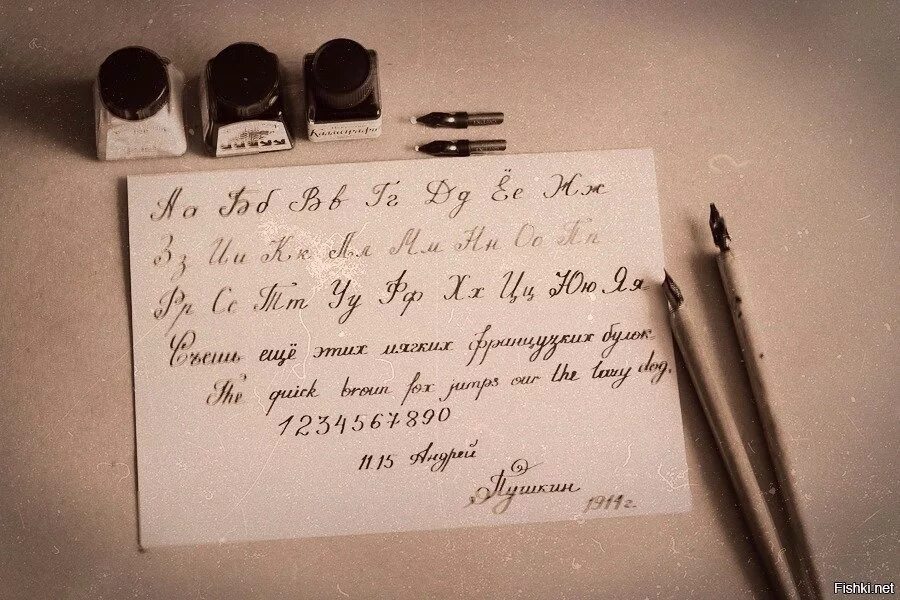 Аа Бб Вв Гг Дд Ёе Жж
Зз Ии Кк Лл Мм Нн Оо Пп
Рр Сс Тт Уу Фф Хх Цц Юю Яя
Съешь ещё этих мягких французких булок
The quick broun fox jumps our the lazy dog.
1234567890
11.15 Андрей
Пушкин
1911 г.
Fishki.net